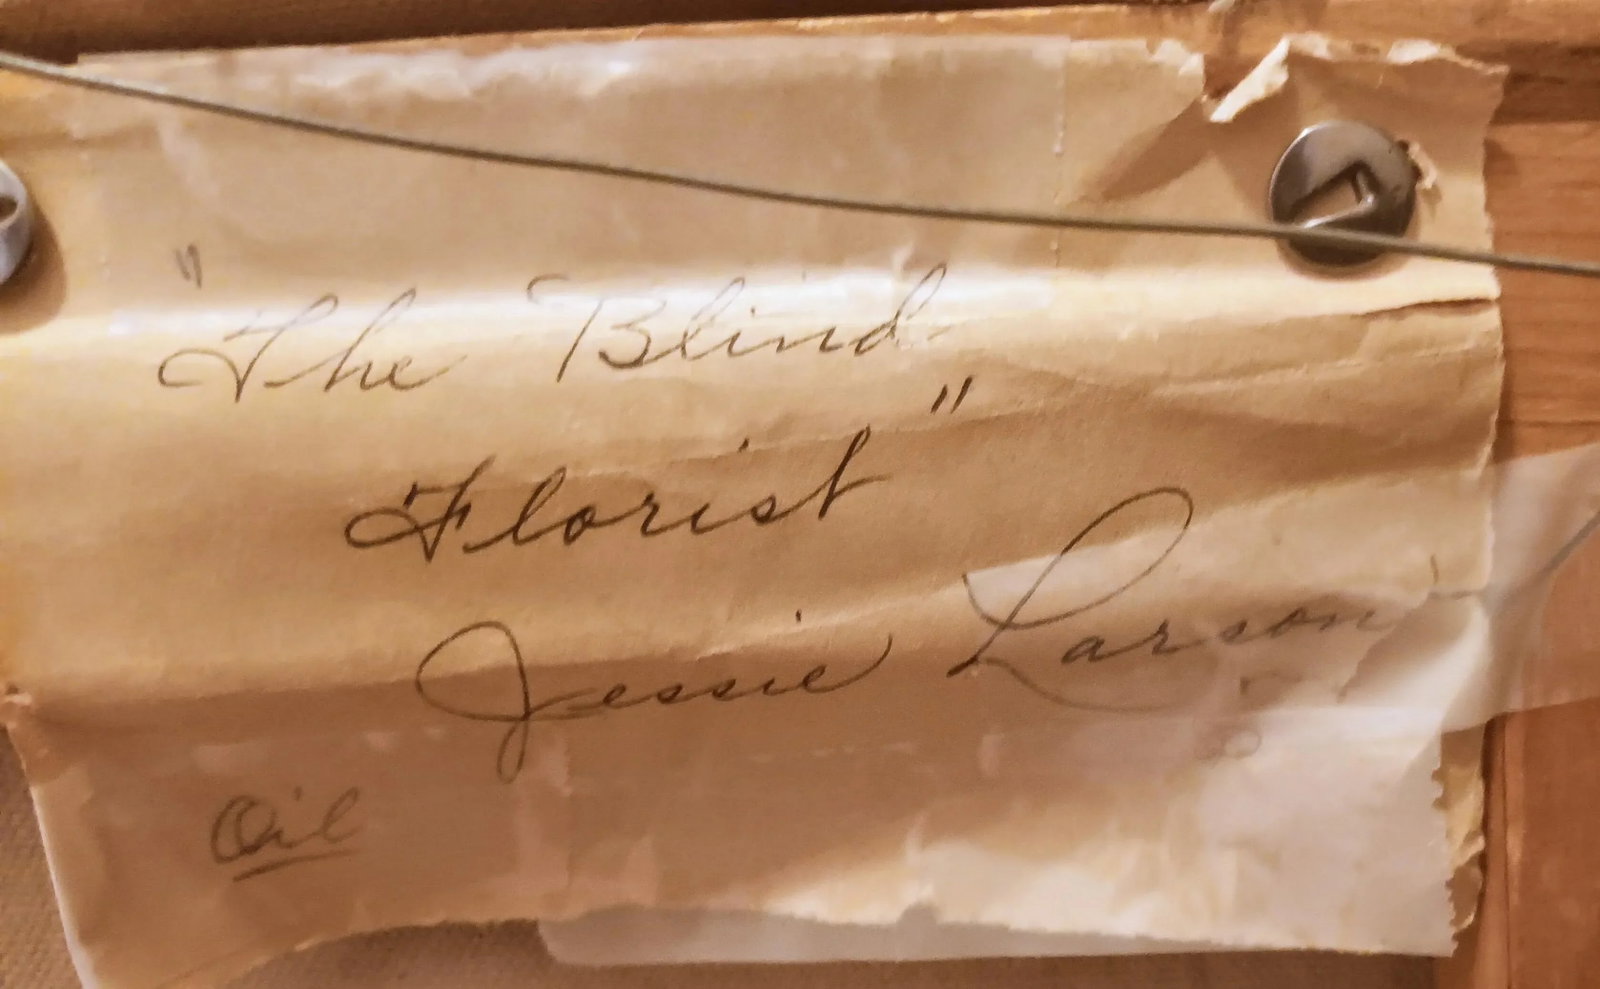 "The Blind
Florist"
Jessie Larson
Oil